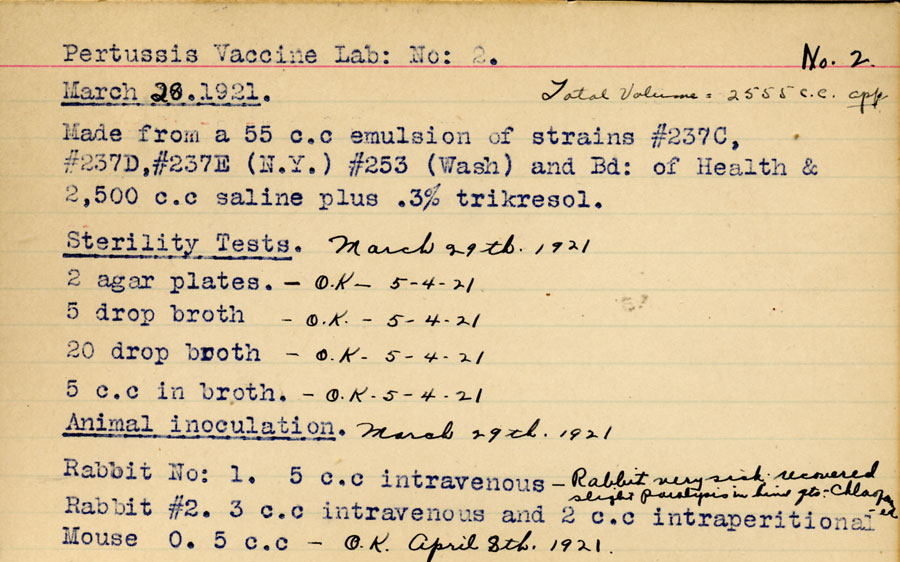 Pertussis Vaccine Lab: No: 2. No. 2.
March 28.1921. Total Volume = 2555 c.c. app
Made from a 55 c.c emulsion of strains #237C,
#237D,#237E (N.Y.) #253 (Wash) and Bd: of Health &
2,500 c.c saline plus .3% trikresol.
Sterility Tests. March 29th. 1921
2 agar plates. - O.K - 5-4-21
5 drop broth - O.K. - 5-4-21
20 drop broth - O.K - 5-4-21
5 c.c in broth. - O.K - 5-4-21
Animal inoculation. March 29th. 1921
Rabbit No: 1. 5 c.c intravenous - Rabbit very sick recovered
slight paralysis in hind
Rabbit #2. 3 c.c intravenous and 2 c.c intraperitional
Mouse 0. 5 c.c - O.K. April 8th. 1921.